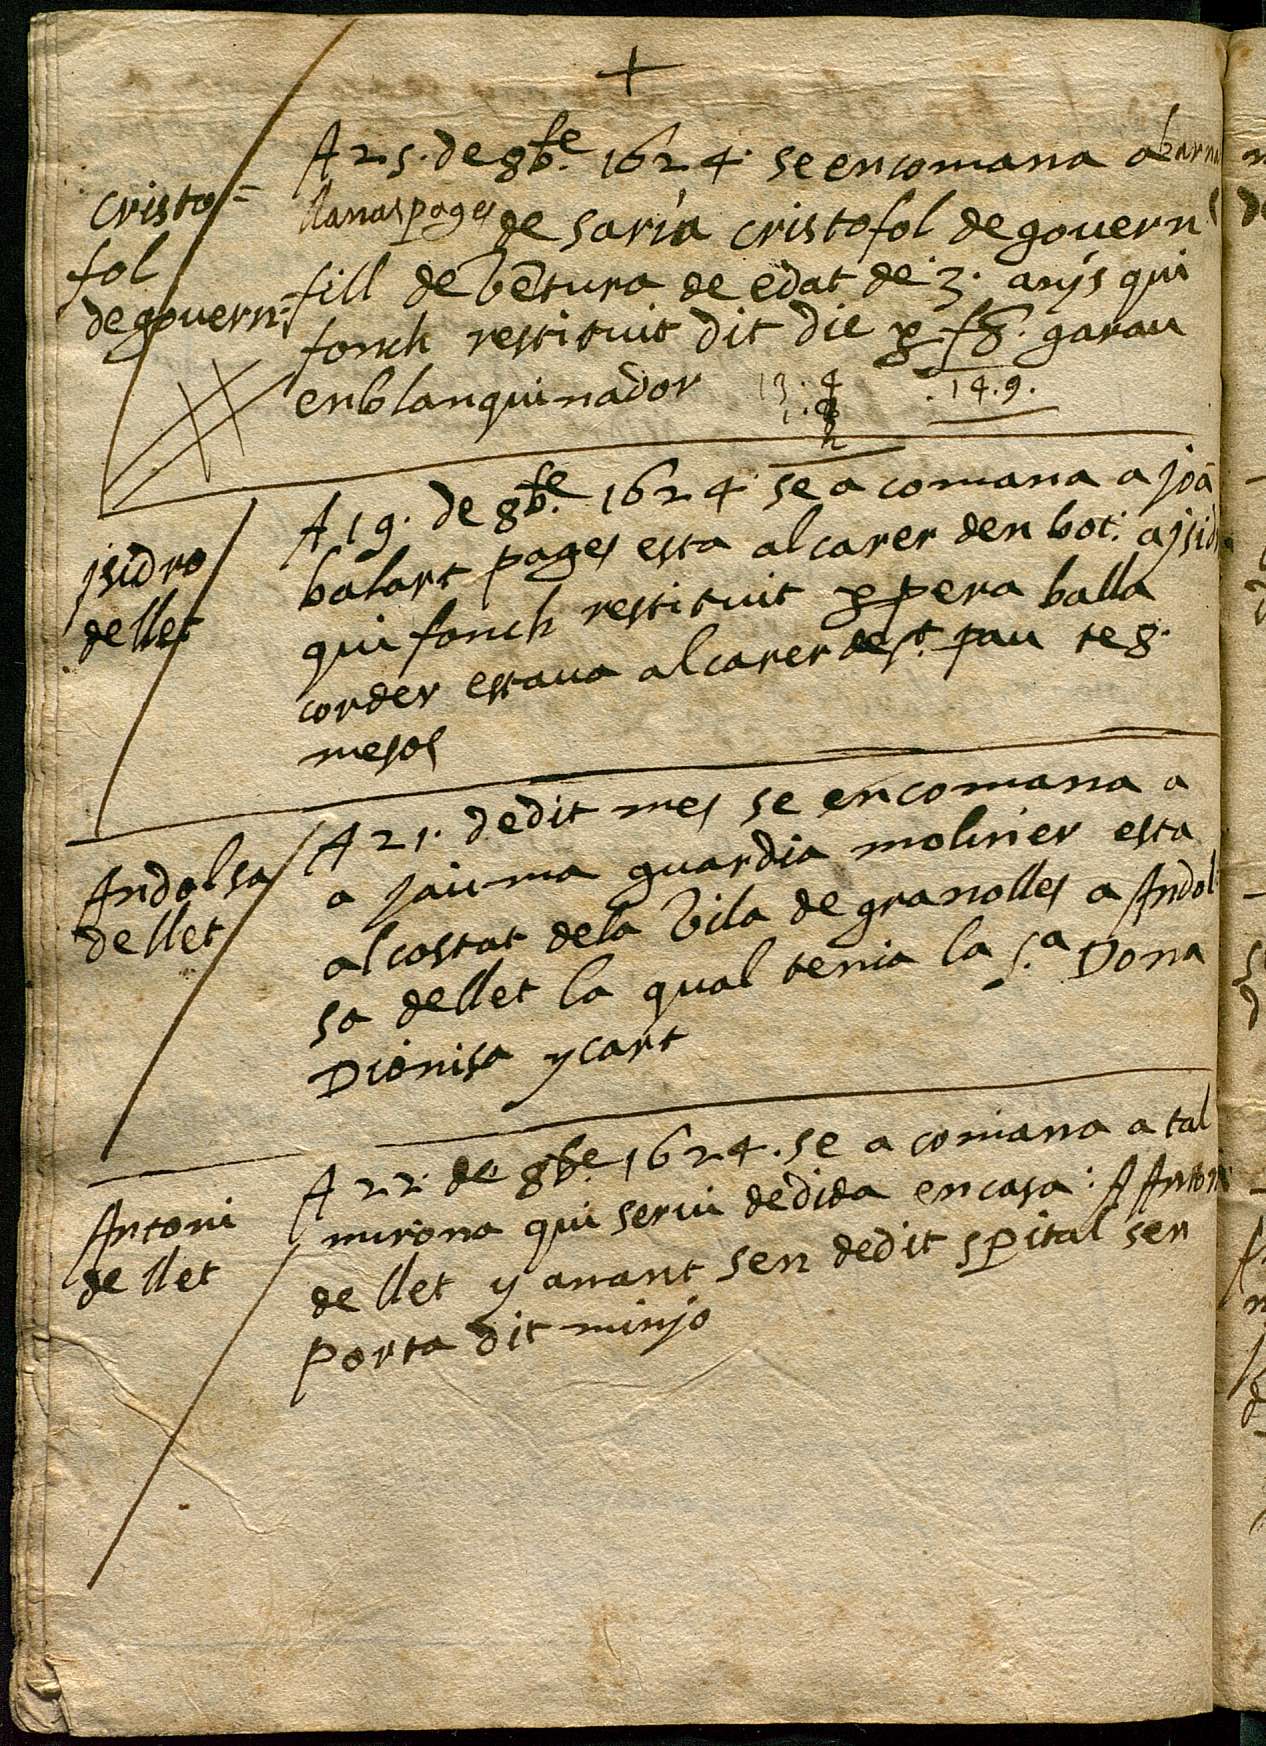 +
Cristo=
fol
degovern=
A 25. de 8bre. 1624. se encomana a barna
llanas pages de saria cristofol de govern
fill de bētura de edat de 3. anys qui
fonch restituit dit die garau
enblanquinador
.14.9.
jsidro
dellet
A 19. de 8bre. 1624 se a comana a joā
balart pages esta al carer den bot. a jsid
qui fonch restituit p pera balla
corder estava al carer de st. pau te 8.
mesos
Andolsa
dellet
A 21. dedit mes se encomana a
a jauma guardia moliner esta
al costat dela vila de granolles a Andol
sa dellet la qual tenia la s.a Dona
Dionisa ycart
Antoni
de llet
A 22. de 8bre. 1624. se a comana a tal
mirona qui servi dedida en casa: A Antoni
de llet y anant sen dedit spital sen
porta dit minjo